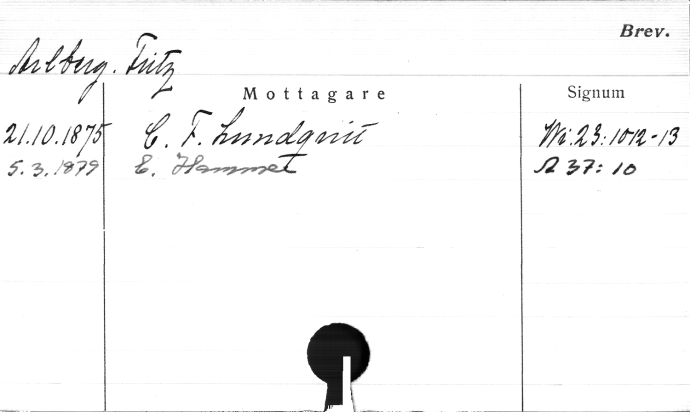 Brev.
Arlberg. Fritz
Mottagare Signum
21.10.1875 C. F. Lundqvist Wi:23:1012-13
5.3.1879 E. Hammer A 37:10